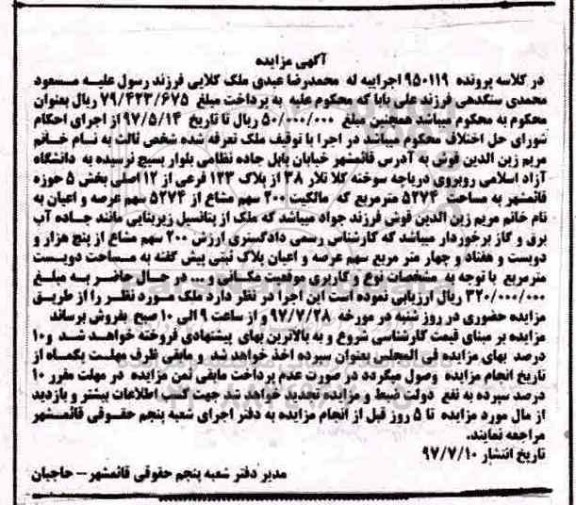 آگهی مزایده
در کلاسه پرونده ۹۵۰۱۱۹ اجراییه له محمدرضا عبدی ملک کلایی فرزند رسول علیه مسعود
محمدی سنگدهی فرزند علی بابا که محکوم علیه به پرداخت مبلغ ۷۹/۴۲۳/۶۷۵ ریال بعنوان
محکوم به محکوم میباشد همچنین مبلغ ۵۰/۰۰۰/۰۰۰ ریال تا تاریخ ۹۷/۵/۱۴ از اجرای احکام
شورای حل اختلاف محکوم میباشد در اجرا با توقیف ملک تعرفه شده شخص ثالث به نام خانم
مریم زین الدین قوش به آدرس قائمشهر خیابان بابل جاده نظامی بلوار بسیج نرسیده به دانشگاه
آزاد اسلامی روبروی دریاچه سوخته کلا تلار ۳۸ از پلاک ۱۲۳ فرعی از ۱۲ اصلی بخش ۵ حوزه
قائمشهر به مساحت ۵۲۷۴ مترمربع که مالکیت ۲۰۰ سهم مشاع از ۵۲۷۴ سهم عرصه و اعیان به
نام خانم مریم زین الدین قوش فرزند جواد میباشد که ملک از پتانسیل زیربنایی مانند جاده آب
برق و گاز برخوردار میباشد که کارشناس رسمی دادگستری ارزش ۲۰۰ سهم مشاع از پنج هزار و
دویست و هفتاد و چهار متر مربع سهم عرصه و اعیان پلاک ثبتی پیش گفته به مساحت دویست
مترمربع با توجه به مشخصات نوع و کاربری موقعیت مکانی و... در حال حاضر به مبلغ
۳۲۰/۰۰۰/۰۰۰ ریال ارزیابی نموده است این اجرا در نظر دارد ملک مورد نظر را از طریق
مزایده حضوری در روز شنبه در مورخه ۹۷/۷/۲۸ و از ساعت ۹ الی ۱۰ صبح بفروش برساند
مزایده بر مبنای قیمت کارشناسی شروع و به بالاترین بهای پیشنهادی فروخته خواهد شد و ۱۰
درصد بهای مزایده فی المجلس بعنوان سپرده اخذ خواهد شد و مابقی ظرف مهلت یکماه از
تاریخ انجام مزایده وصول میگردد در صورت عدم پرداخت مابقی ثمن مزایده در مهلت مقرر ۱۰
درصد سپرده به نفع دولت ضبط و مزایده تجدید خواهد شد جهت کسب اطلاعات بیشتر و بازدید
از مال مورد مزایده تا ۵ روز قبل از انجام مزایده به دفتر اجرای شعبه پنجم حقوقی قائمشهر
مراجعه نمایند.
تاریخ انتشار ۹۷/۷/۱۰
مدیر دفتر شعبه پنجم حقوقی قائمشهر – حاجیان